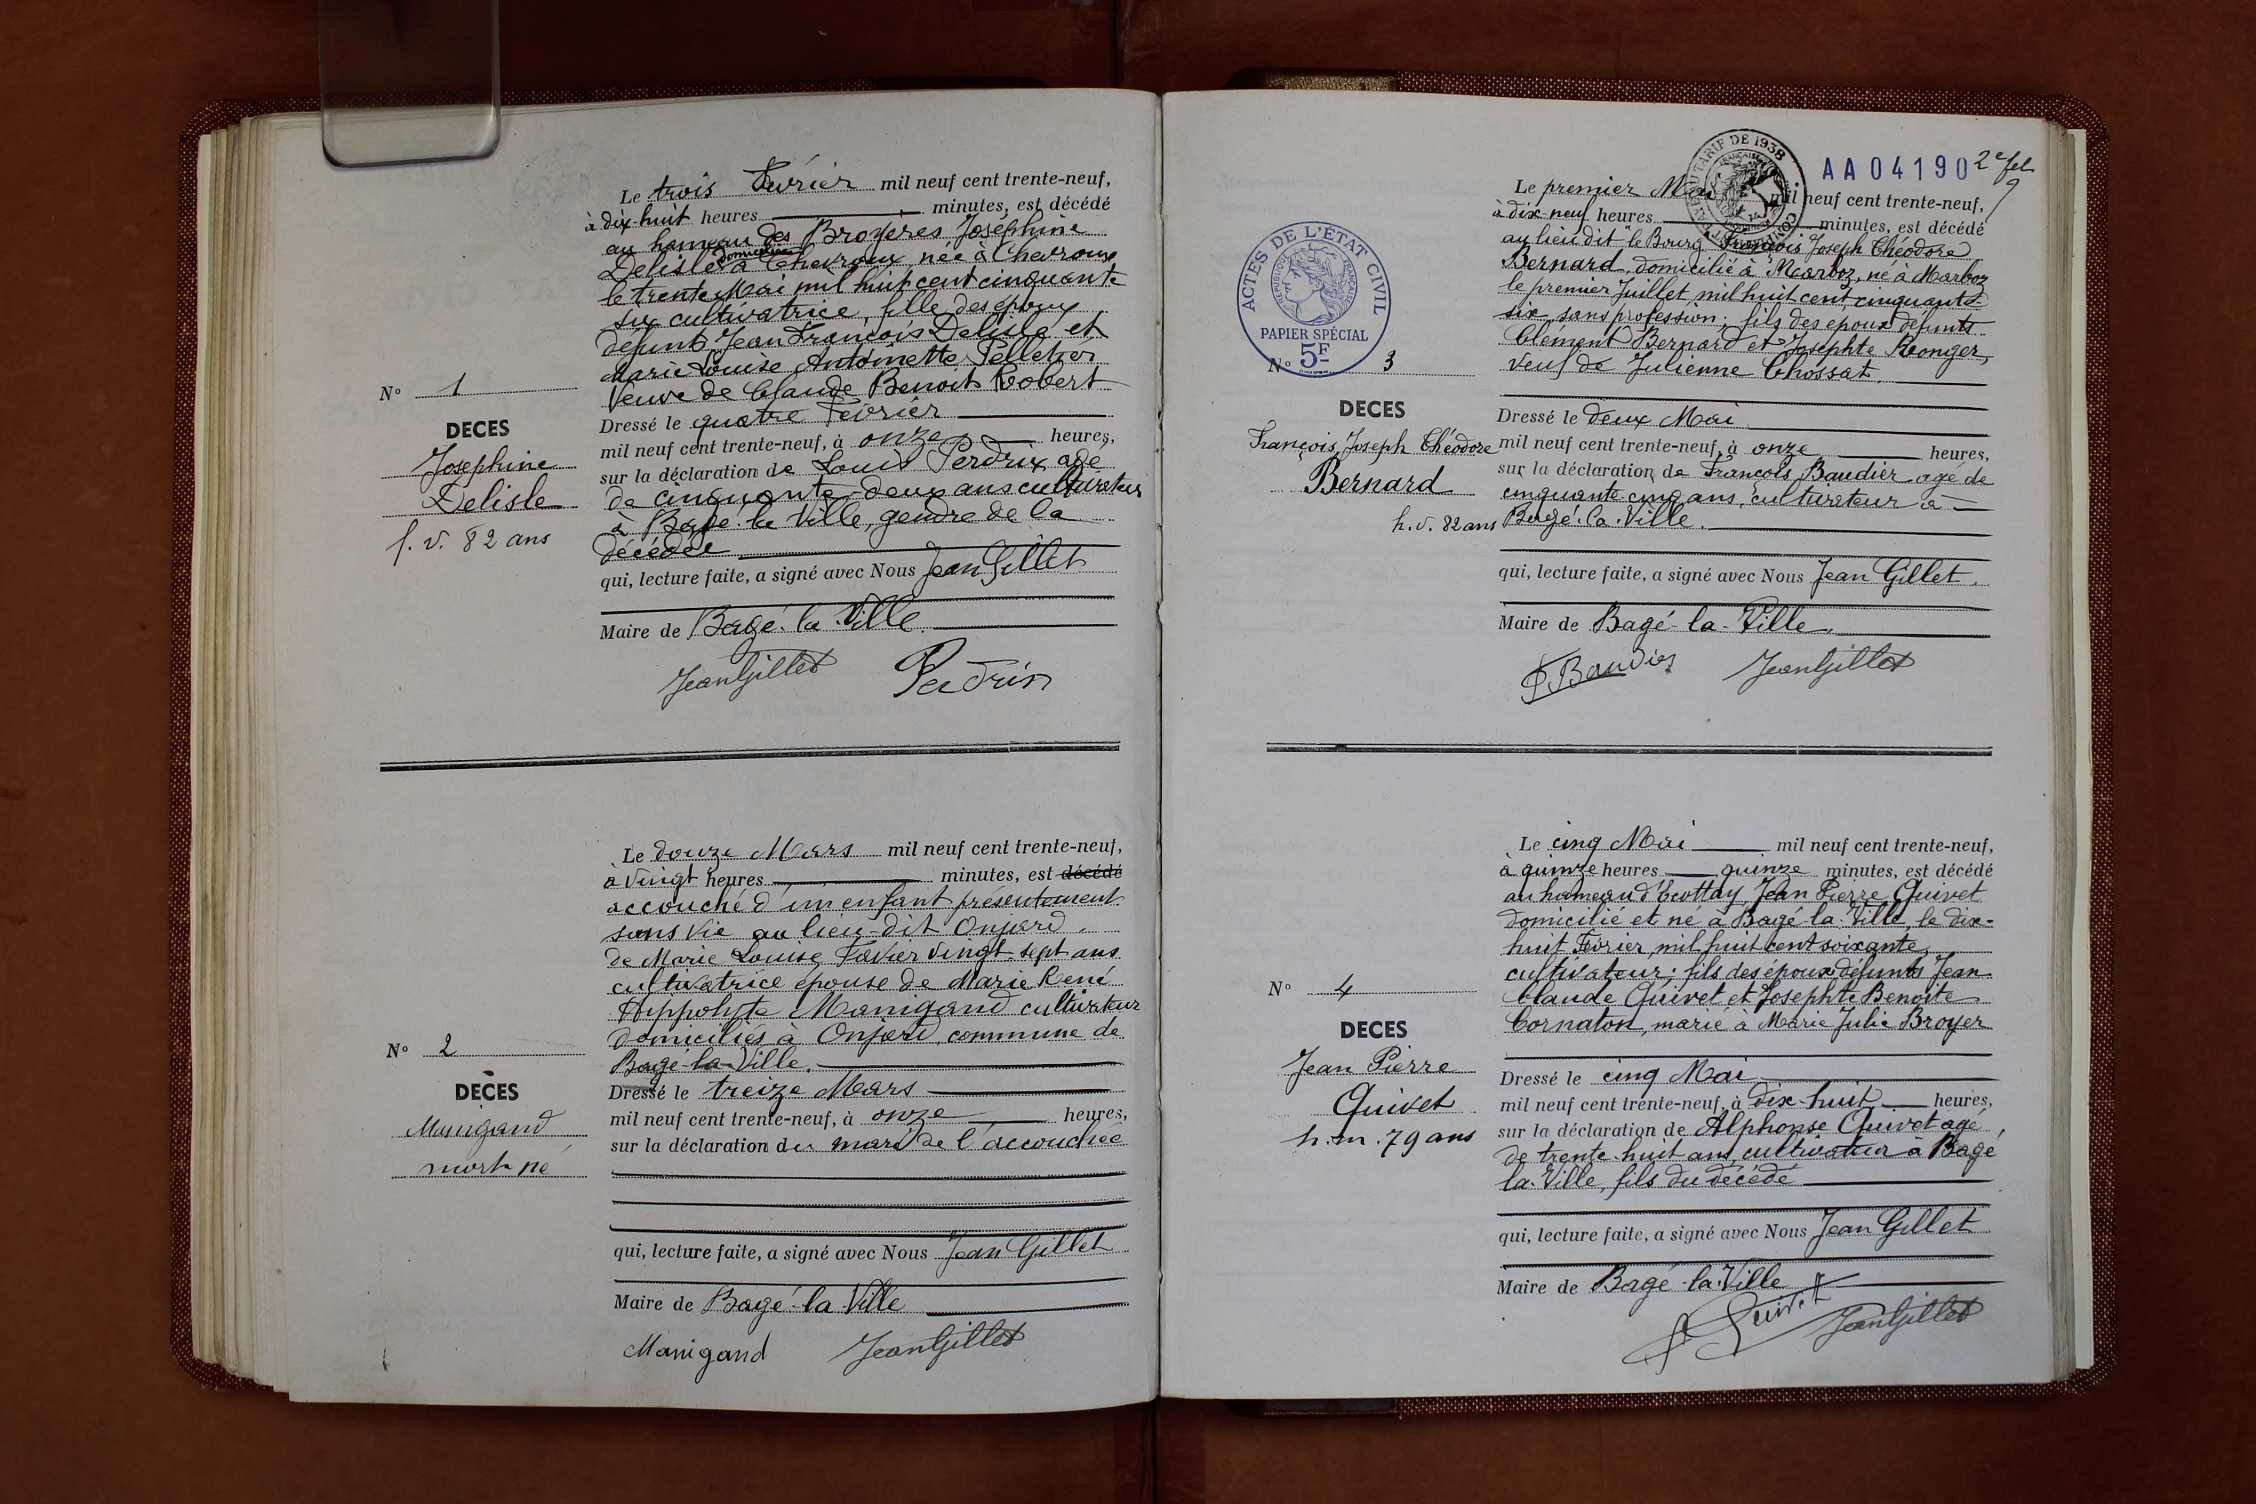 Le trois Février mil neuf cent trente-neuf,
à dix-huit heures minutes, est décédé
au hameau des Broyères Joséphine
domiciliée
Delisle à Chevroux, née à Chevroux
le trente Mai mil huit cent cinquante
six cultivatrice, fille des époux
défunts Jean François Delisle et
Marie Louise Antoinette Pelletier
Veuve de Claude Benoit Robert
N° 1
DECES
Joséphine
Delisle
f. v. 82 ans
Dressé le quatre Février
mil neuf cent trente-neuf, à onze heures,
sur la déclaration de Louis Perdrix agé
de cinquante-deux ans cultivateur
à Bagé-la-Ville, gendre de la
décédée
qui, lecture faite, a signé avec Nous Jean Gillet
Maire de Bagé-la-Ville.
JeanGillet Perdrix
Le douze Mars mil neuf cent trente-neuf,
à vingt heures minutes, est décédé
accouché d'un enfant présentement
sans vie au lieu-dit Onjard.
de Marie Louise Favier vingt-sept ans
cultivatrice épouse de Marie René
Hippolyte Manigand cultivateur
domiciliés à Onjard, commune de
Bagé-la-Ville.
N° 2
DECES
Manigand
mort né
Dressé le treize Mars
mil neuf cent trente-neuf, à onze heures,
sur la déclaration du mari de l'accouchée
qui, lecture faite, a signé avec Nous Jean Gillet
Maire de Bagé-la-Ville
Manigand JeanGillet
TARIF DE 1938
AA04190
2e fel
9
ACTES DE L'ÉTAT CIVIL
RÉPUBLIQUE FRANÇAISE
PAPIER SPÉCIAL
5F
Le premier Mai mil neuf cent trente-neuf,
à dix neuf heures minutes, est décédé
au lieu dit "le Bourg" François Joseph Théodore
Bernard, domicilié à Marboz, né à Marboz
le premier Juillet mil huit cent cinquante
six, sans profession; fils des époux défunts
Clément Bernard et Josephte Ronger,
veuf de Julienne Chossat.
N° 3
DECES
François Joseph Théodore
Bernard
h. v. 82 ans
Dressé le deux Mai
mil neuf cent trente-neuf, à onze heures,
sur la déclaration de François Baudier agé de
cinquante cinq ans, cultivateur à
Bagé-la-Ville.
qui, lecture faite, a signé avec Nous Jean Gillet.
Maire de Bagé-la-Ville.
F Baudier JeanGillet
Le cinq Mai mil neuf cent trente-neuf,
à quinze heures quinze minutes, est décédé
au hameau d'Ecottay, Jean Pierre Quivet
domicilié et né à Bagé-la-Ville, le dix-
huit Février mil huit cent soixante,
cultivateur; fils des époux défunts Jean
Claude Quivet et Josephte Benoite
Cornaton, marié à Marie Julie Broyer
N° 4
DECES
Jean Pierre
Quivet
h. m. 79 ans
Dressé le cinq Mai
mil neuf cent trente-neuf, à dix-huit heures,
sur la déclaration de Alphonse Quivet agé
de trente-huit ans, cultivateur à Bagé
la-Ville, fils du décédé
qui, lecture faite, a signé avec Nous Jean Gillet
Maire de Bagé-la-Ville
A Quivet JeanGillet